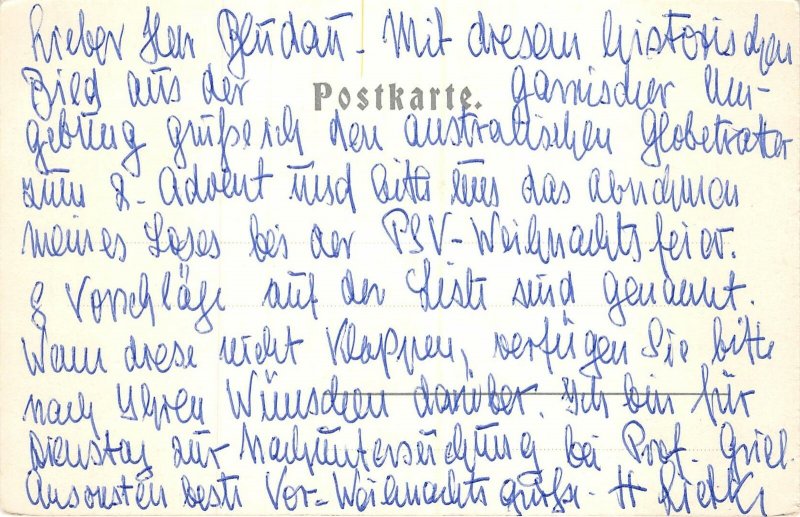 Lieber Herr Bludau - Mit diesem historischen
Bild aus der Garmischer Um-
Postkarte.
gebung grüße ich den australischen Globetrotter
zum 2. Advent und bitte um das abnehmen
meines Loses bei der PSV-Weihnachtsfeier.
8 Vorschläge auf der Liste sind genannt.
Wenn diese nicht klappen, verfügen Sie bitte
nach Ihren Wünschen darüber. Ich bin für
Dienstag zur Nachuntersuchung bei Prof.
Ansonsten beste Vor-Weihnachtsgrüße - H